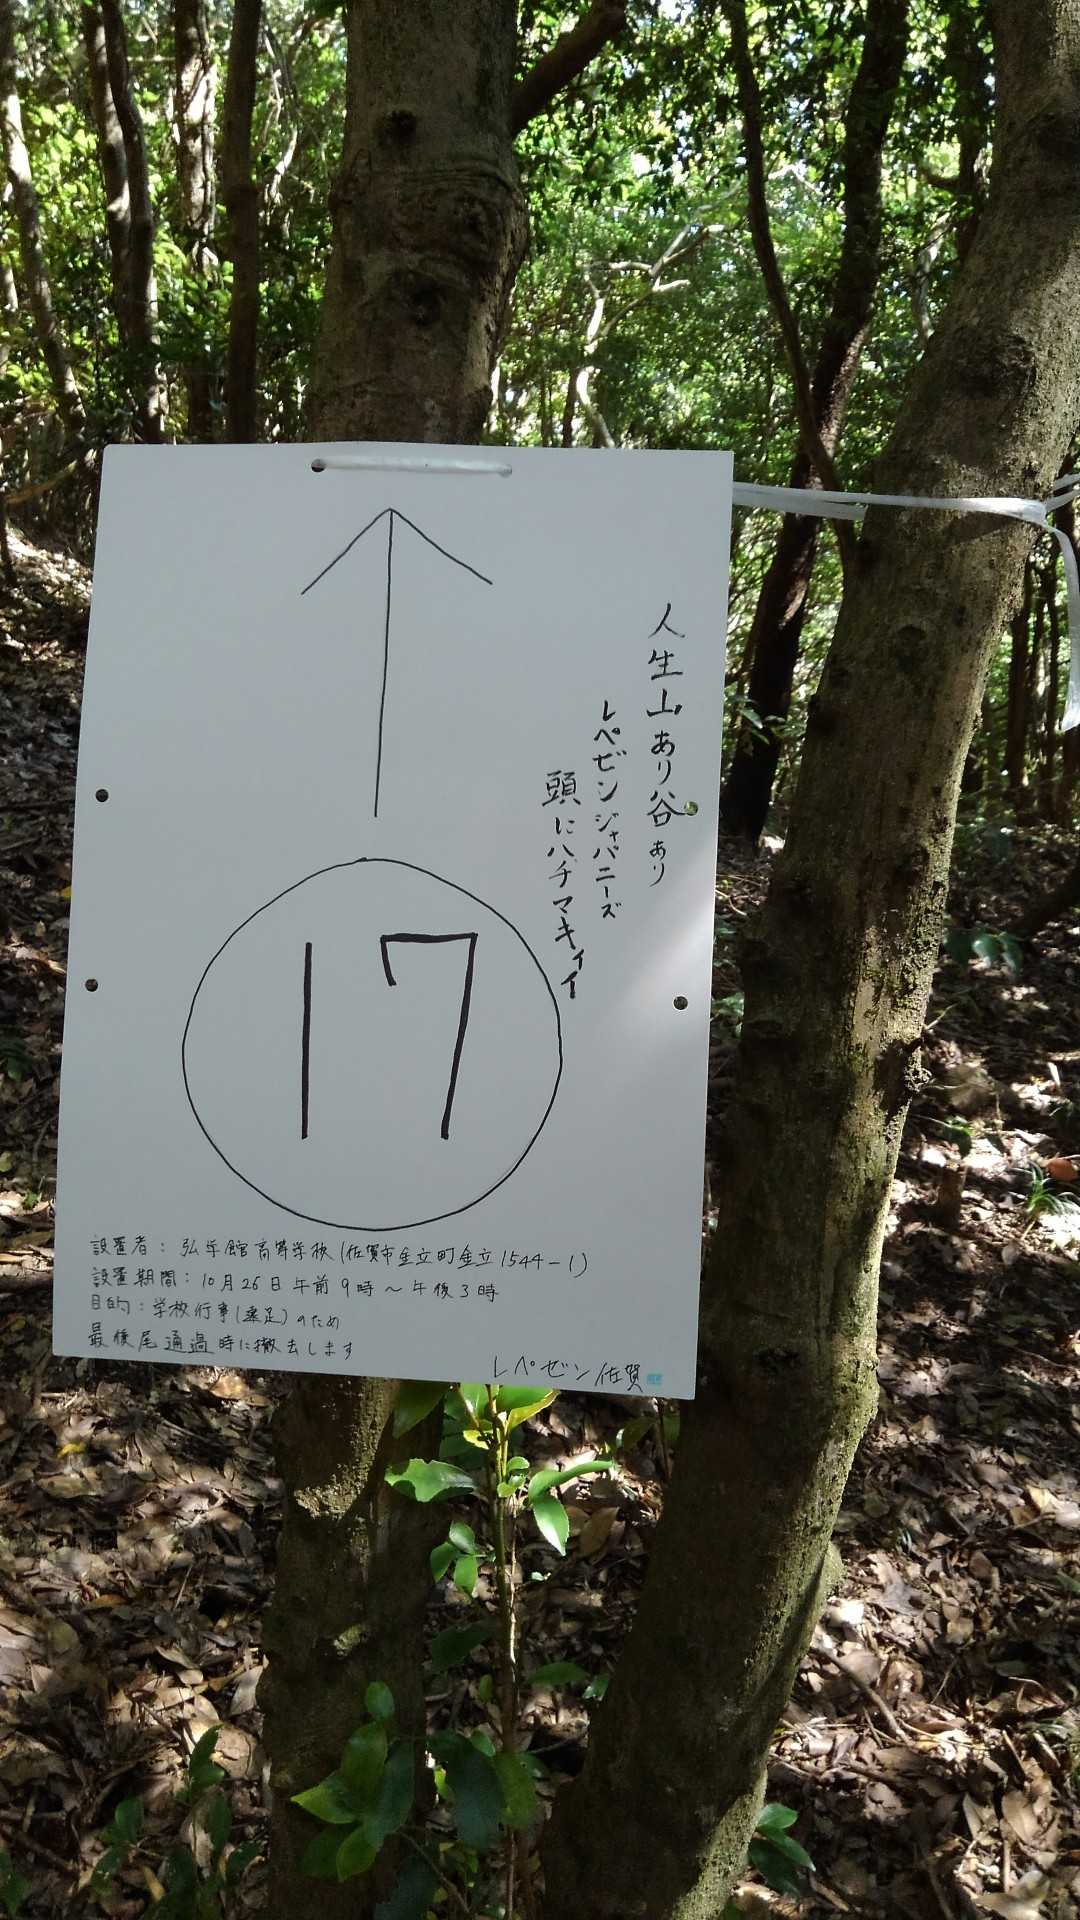 人生山あり谷あり
レペゼンジャパニーズ
頭にハチマキィィ
17
設置者：弘学館高等学校(佐賀市金立町金立1544-1)
設置期間：10月26日午前9時～午後3時
目的：学校行事(遠足)のため
最後尾通過時に撤去します
レペゼン佐賀